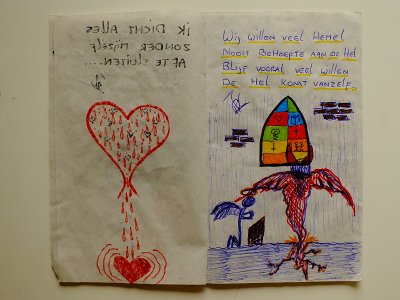 ik dicht alles
zonder mijzelf
af te sluiten....
Wij willen veel Hemel
Nooit Behoefte aan de Hel
Blijf vooral veel willen
De Hel komt vanzelf..